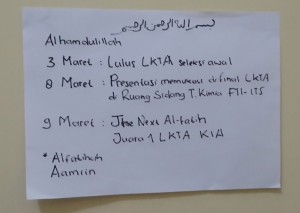 بسم الله الرحمن الرحيم
Alhamdulillah
3 Maret : Lulus LKTA seleksi awal
8 Maret : Presentasi memukau di final LKTA
di Ruang Sidang T. Kimia FTI-ITS
9 Maret : The Next Al-fatih
Juara 1 LKTA KIA
* Alfatihah
Aamiin